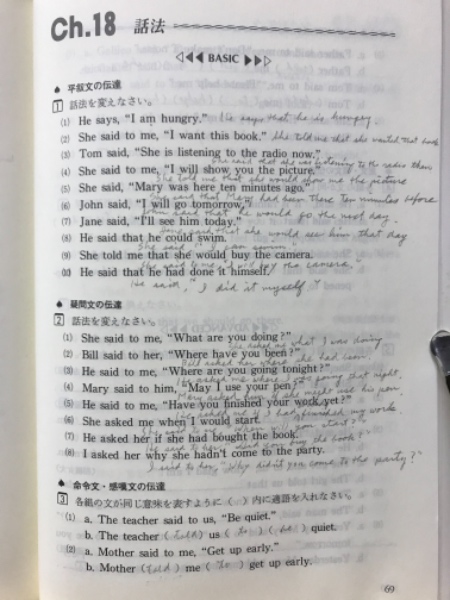 Ch.18 話法
BASIC
♠ 平叙文の伝達
1 話法を変えなさい。
(1) He says, "I am hungry." He says that he is hungry
(2) She said to me, "I want this book." She told me that she wanted that book
(3) Tom said, "She is listening to the radio now."
said that she was listening to the radio then
(4) She said to me, "I will show you the picture."
She told me that she would show me the picture
(5) She said, "Mary was here ten minutes ago."
said that Mary had been there ten minutes before
(6) John said, "I will go tomorrow."
John said that he would go the next day.
(7) Jane said, "I'll see him today."
Jane said that she would see him that day
(8) He said that he could swim.
"I can swim."
(9) She told me that she would buy the camera.
She said to me, I will buy the camera.
(10) He said that he had done it himself.
He said, "I did it myself."
♠ 疑問文の伝達
2 話法を変えなさい。
(1) She said to me, "What are you doing?"
She asked me what I was doing
(2) Bill said to her, "Where have you been?"
Bill asked her where she had been.
(3) He said to me, "Where are you going tonight?"
He asked me where I was going that night.
(4) Mary said to him, "May I use your pen?"
Mary asked him if she might use his pen
(5) He said to me, "Have you finished your work yet?"
He asked me if I had finished my work.
(6) She asked me when I would start.
She said to me, "When will you start?"
(7) He asked her if she had bought the book.
He said to her, "Did you buy the book?"
(8) I asked her why she hadn't come to the party.
I said to her, "Why didn't you come to the party?"
♠ 命令文・感嘆文の伝達
3 各組の文が同じ意味を表すように( )内に適語を入れなさい。
(1) a. The teacher said to us, "Be quiet."
b. The teacher (told) us (to) (be) quiet.
(2) a. Mother said to me, "Get up early."
b. Mother (told) me (to) get up early.
69